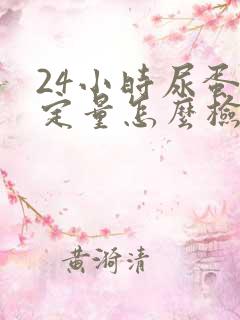 24小時尿蛋
定量怎麼檢
黄漪清